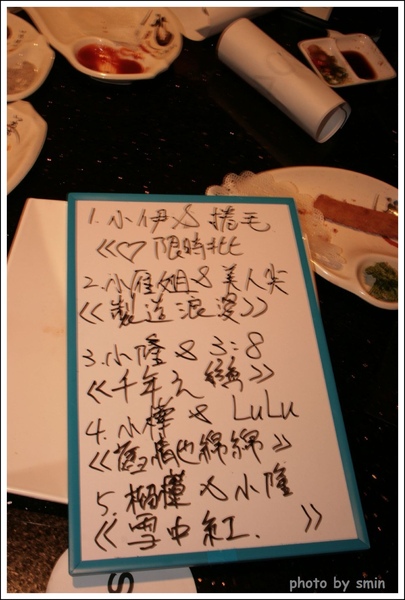 1. 小伊 & 捲毛
《♡ 限時批
2. 小雁姐 & 美人尖
《製造浪漫》
3. 小隆 & 3:8
《千年之戀》
4. 小樺 & LuLu
《舊情也綿綿》
5. 榴槤 & 小隆
《雪中紅.》
photo by smin